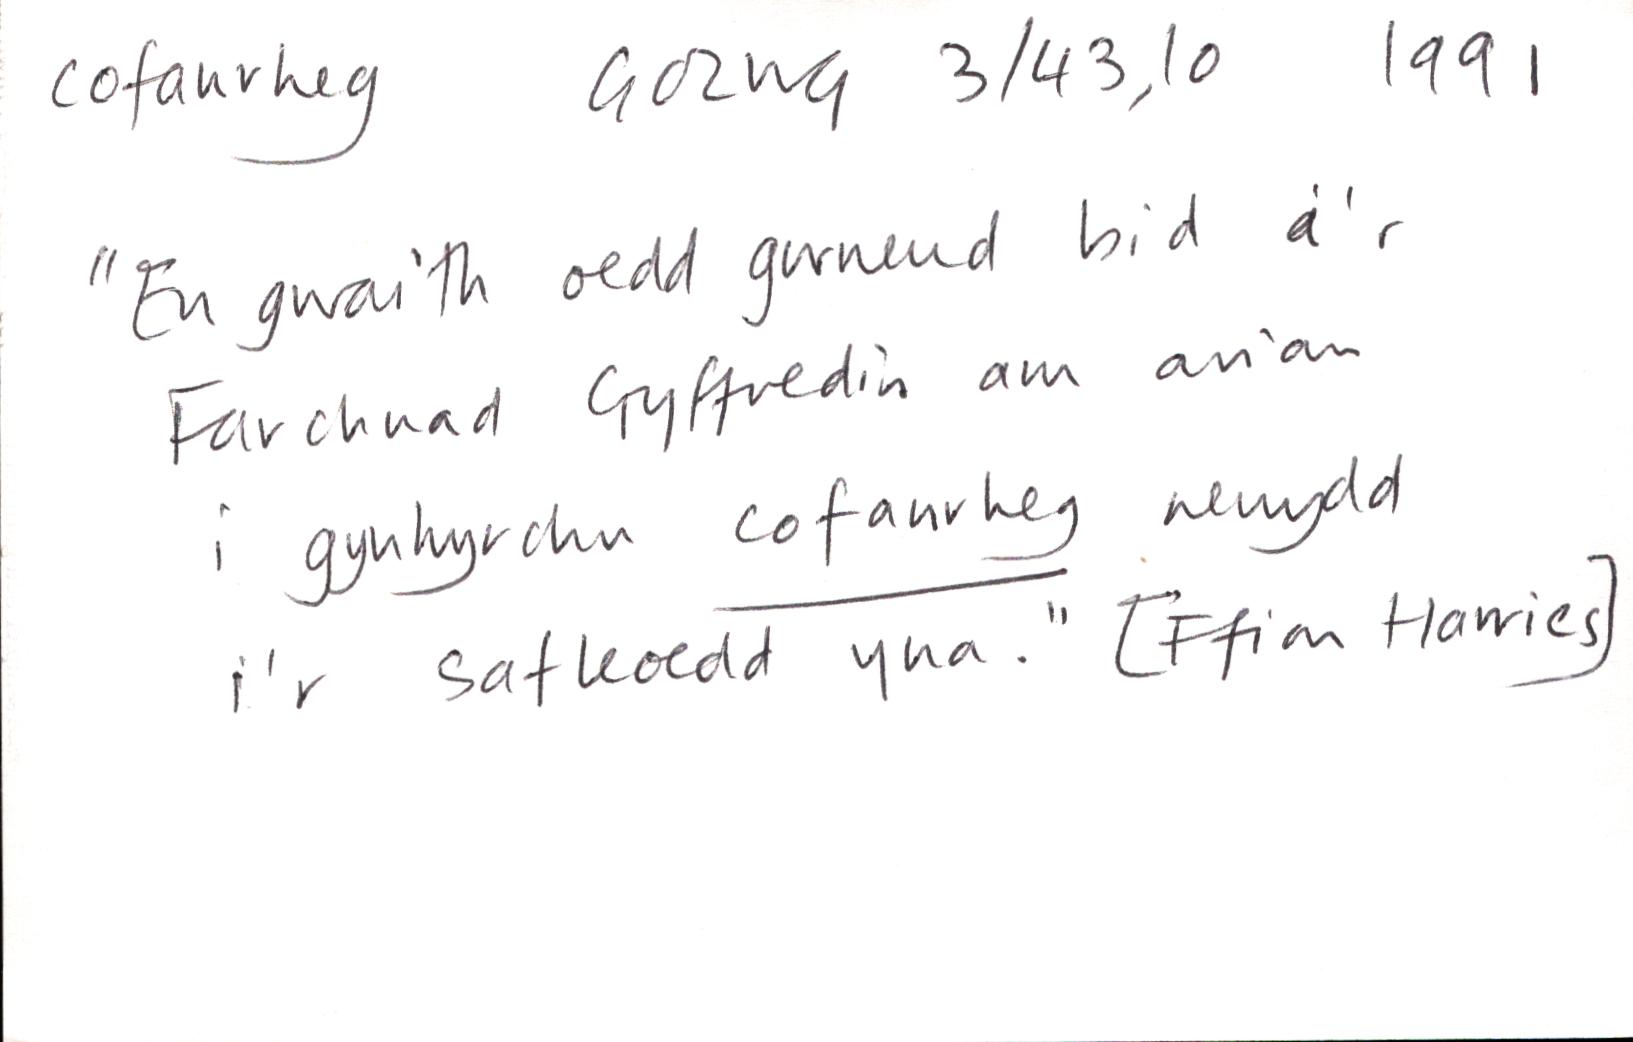 cofanrheg GOZWG 3/43,10 1991
"Eu gwaith oedd gwneud bid â'r
Farchnad Gyffredin am arian
i gynhyrchu cofanrheg newydd
i'r safleoedd yna." [Ffion Harries]